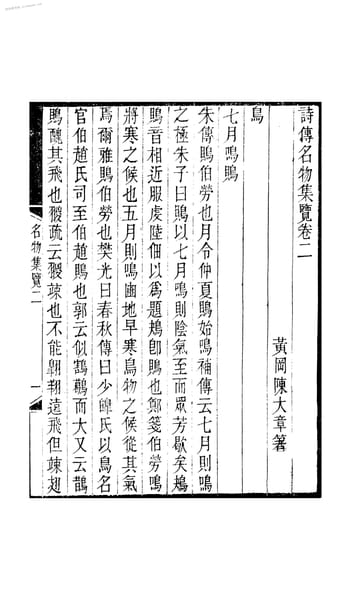 詩傳名物集覽卷二
黃岡陳大章著
鳥
七月鳴鵙
朱傳鵙伯勞也月令仲夏鵙始鳴補傳云七月則鳴
之極朱子曰鵙以七月鳴則陰氣至而眾芳歇矣鴂
鵙音相近服虔陸佃以為鶗鴂即鵙也鄭箋伯勞鳴
將寒之候也五月則鳴豳地早寒鳥物之候從其氣
焉爾雅鵙伯勞也樊光曰春秋傳曰少皞氏以鳥名
官伯趙氏司至伯趙鵙也郭云似鶷鶡而大又云鵲
鵙醜其飛也翪疏云翪竦也不能翱翔遠飛但竦翅
名物集覽二
一